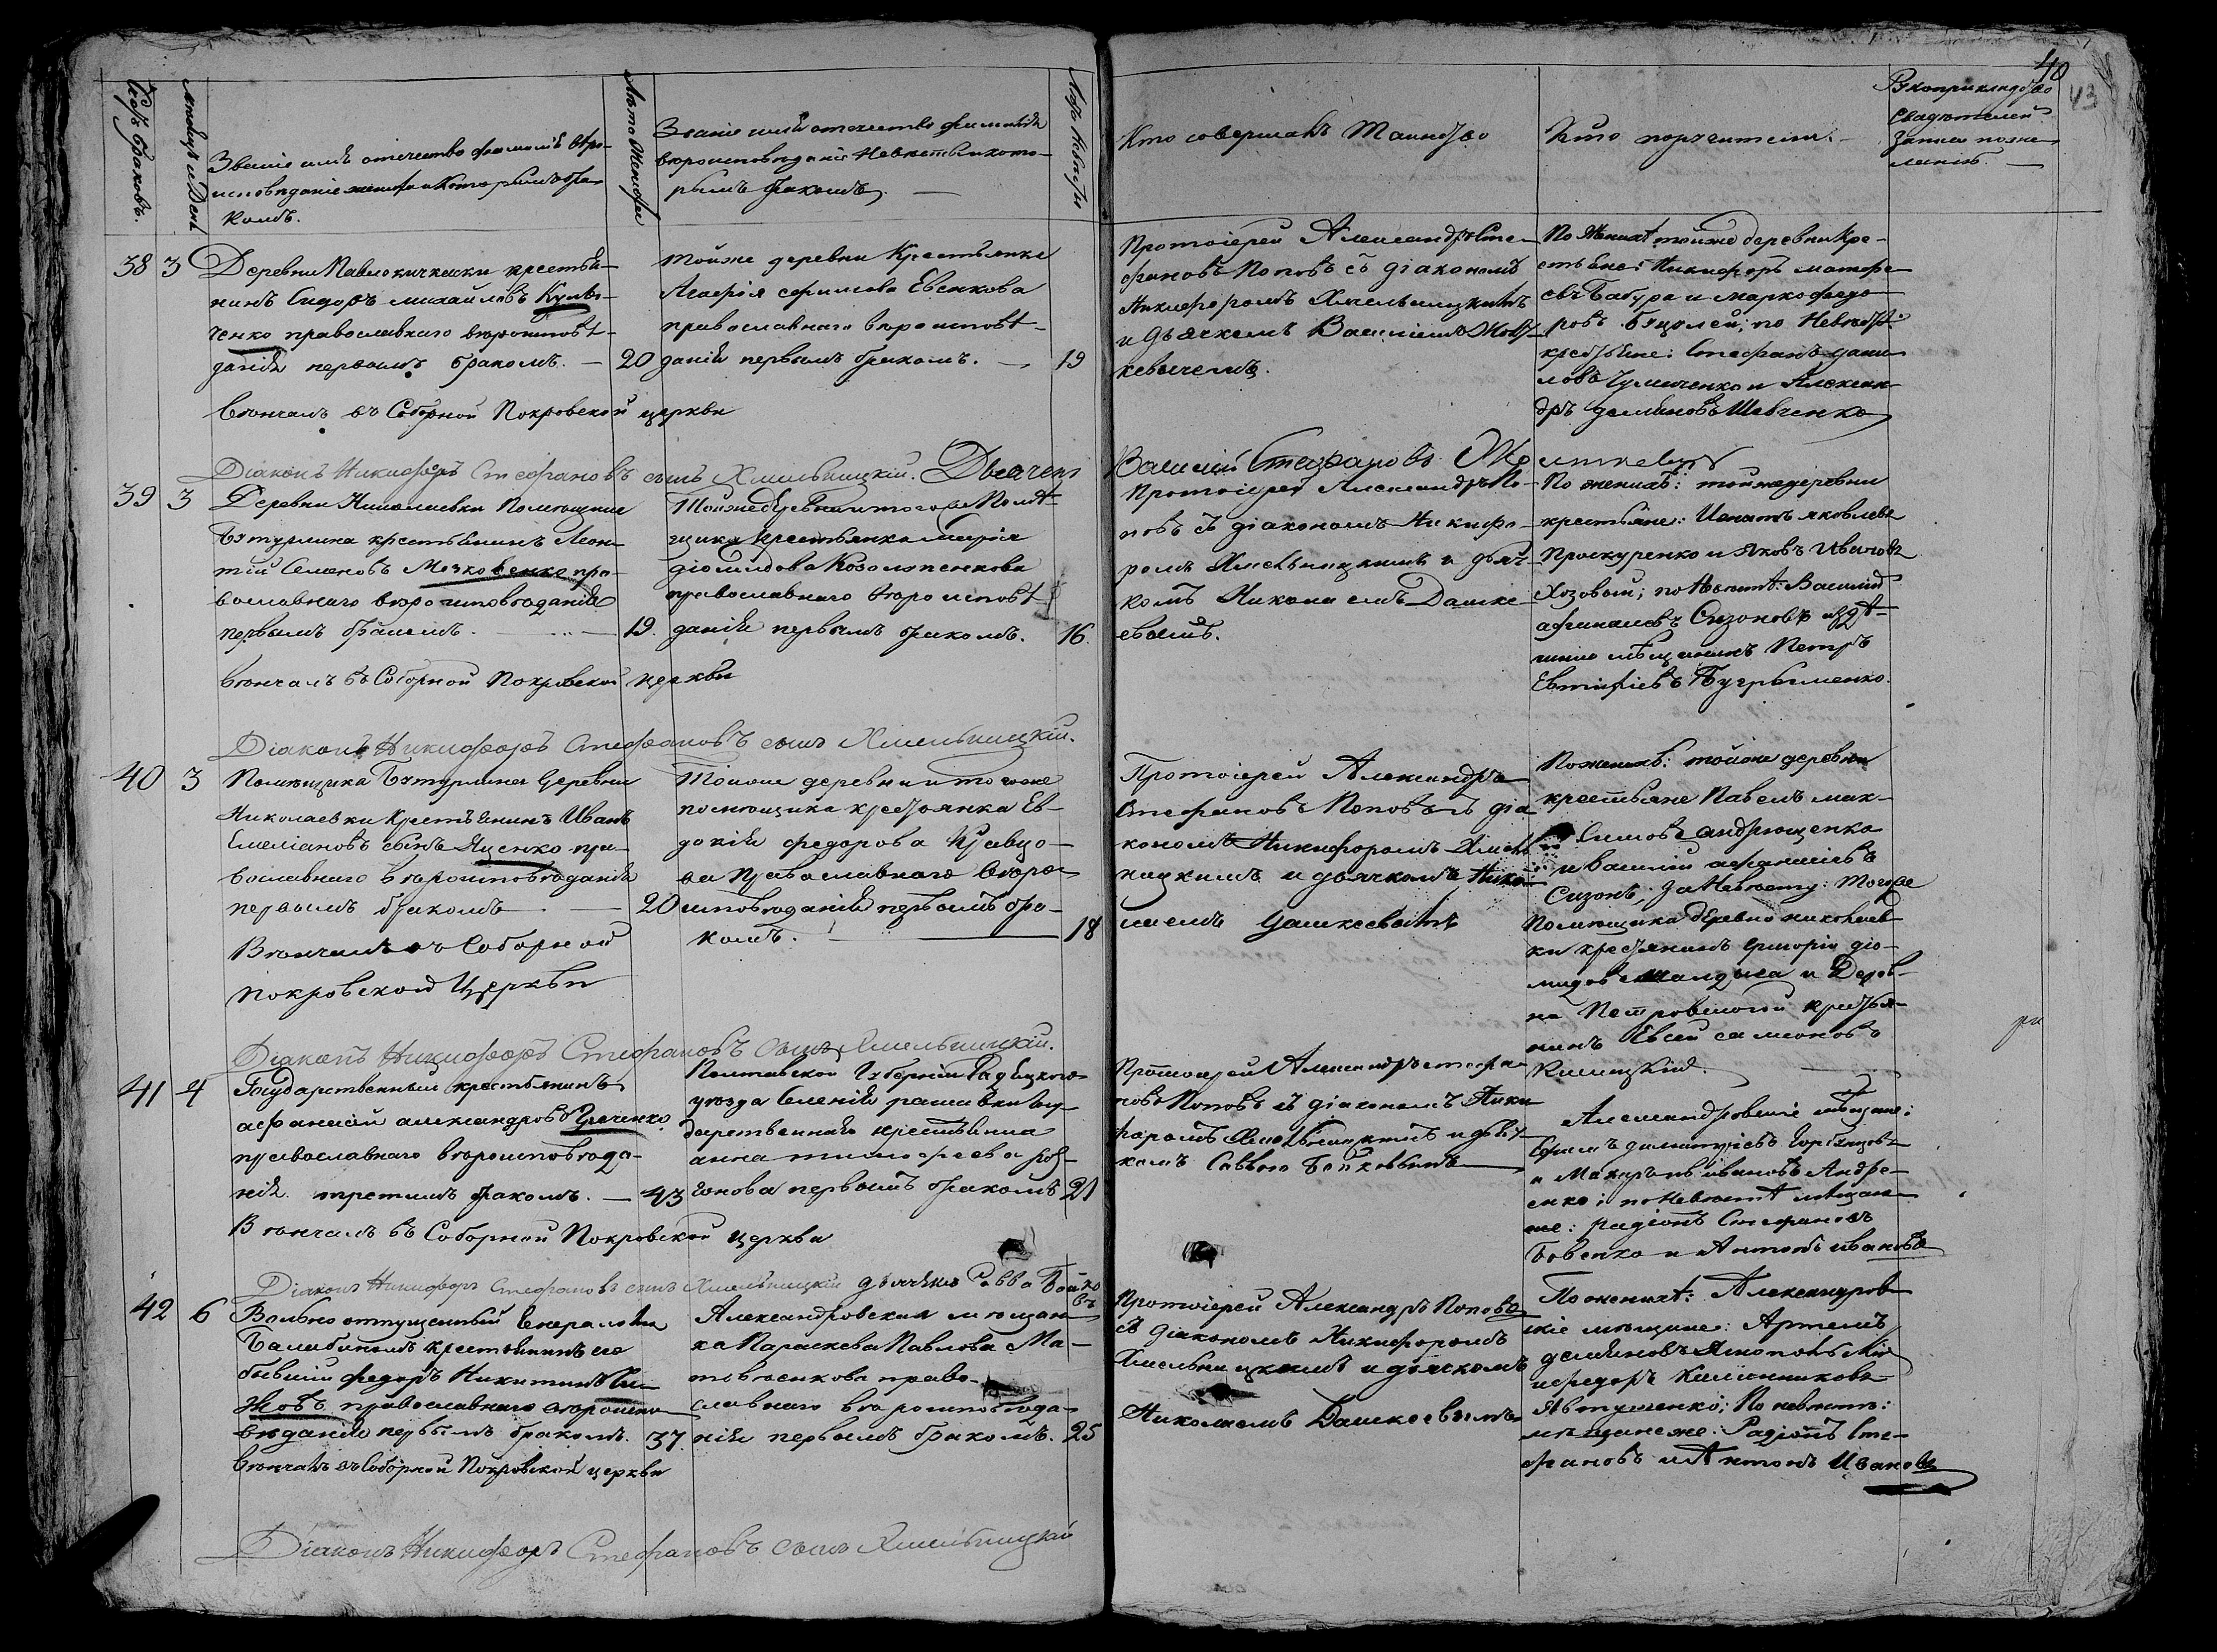 40
43
Счетъ браковъ.
Мѣсяцъ и День
Званіе имѣ отечество фамилія вѣро-
исповѣданіе жениха и Которымъ бра-
комъ.
Лѣта Жениха
Званіе имя отечество фамилія
вѣроисповѣданіе Невѣсты и кото-
рымъ бракомъ. —
Лѣта Невѣсты
Кто совершалъ Таинство
Кто поручители. —
Рукоприкладство
Свидѣтелей
записи по же-
ланію. —
38 3
Деревни Павлокичкаски крестья-
нинъ Сидоръ михайловъ
ченко православнаго вѣроисповѣ-
данія первымъ бракомъ. — 20
Вѣнчалъ въ Соборной Покровской церкви
тойже деревни Крестьянка
Агафія ефимова Евсюкова
православнаго вѣроисповѣ-
данія первымъ бракомъ. — 19
Протоіерей Александръ Сте-
фановъ Поповъ съ діакономъ
Никифоромъ Хмельницкимъ
и дьячкомъ Василіемъ
кевичемъ.
По Женихѣ тойже деревни Кре-
стьяне: Никифоръ
Бабура и марко федо-
ровъ по Невѣстѣ
крестьяне: Стефанъ дани-
ловъ и Алексан-
дръ деміновъ Шевченко
Діаконъ Никифоръ Стефановъ сынъ Хмельницкій. Дьячекъ
Василій Стефановъ
39 3
Деревни Николаевки Помѣщика
Бутурлина крестьянинъ Леон-
тій Семеновъ пра-
вославнаго вѣроисповѣданія
первымъ бракомъ. — 19.
Вѣнчалъ въ Соборной Покровской церкви
Тойже деревни и тогоже Помѣ-
щика крестьянка марія
діомидова Козолупенкова
православнаго вѣроисповѣ-
данія первымъ бракомъ. 16.
Протоіерей Александръ По-
повъ съ діакономъ Никифо-
ромъ Хмельницкимъ и дьяч-
комъ Николаемъ Дашке-
евымъ.
По женихѣ: тойже деревни
крестьяне: Игнатъ яковлевъ
Проскуренко и яковъ Ивановъ
Хозовый; по Невѣстѣ: Василій
афанасіевъ Сизоновъ и
мѣщанинъ Петръ
Евтифіевъ Бугрыменко.
Діаконъ Никифоръ Стефановъ сынъ Хмельницкій.
40 3
Помѣщика Бутурлина Деревни
Николаевки Крестьянинъ Иванъ
Емеліановъ сынъ Яценко пра-
вославнаго вѣроисповѣданія
первымъ бракомъ — 20
Вѣнчалъ въ Соборной
Покровской Церкви
Тойже деревни и тогоже
помѣщика крестьянка Ев-
докія федорова Кравцо-
ва Православнаго Вѣро-
исповѣданія первымъ бра-
комъ. — 18
Протоіерей Александръ
Стефановъ Поповъ съ діа-
кономъ Никифоромъ Хмель-
ницкимъ и дьячкомъ Нико-
лаемъ Дашкеевымъ
По женихѣ: тойже деревни
крестьяне Павелъ мак-
симовъ андрющенко
и Василій афанасіевъ
Сизонъ; За Невѣсту: Тогоже
Помѣщика деревни николаев-
ки крестьянинъ григорій діо-
мидовъ и Дерев-
ни Петровской крестья-
нинъ Евсей самсоновъ
Діаконъ Никифоръ Стефановъ сынъ Хмельницкій.
41 4
Государственный крестьянинъ
афанасій александровъ
православнаго вѣроисповѣда-
нія. третимъ бракомъ. — 43
Вѣнчалъ въ Соборной Покровской церкви
Полтавской Губерніи Гадяцкого
уѣзда Селенія рашавки госу-
дарственнаго крестьянина
анна тимофеева
гонова первымъ бракомъ 21
Протоіерей Александръ стефа-
новъ Поповъ съ діакономъ Ники-
форомъ Хмельницкимъ и дьяч-
комъ Саввою Бойковымъ
Александровскіе мѣщане:
Ефимъ димитріевъ
и Макаръ ивановъ Андре-
енко; по Невѣстѣ мѣщане
же: радіонъ Стефановъ
Бовенко и Антонъ ивановъ
Діаконъ Никифоръ Стефановъ сынъ Хмельницкій дьячекъ Савва Бойко
въ
42 6
Вольно отпущенный Генераломъ
крестьянинъ его
бывшій федоръ Никитинъ
православнаго вѣроиспо-
вѣданія первымъ бракомъ. 37.
Вѣнчалъ въ Соборной Покровской церкви
Александровская мѣщан-
ка Параскева Павлова Ма-
твѣенкова право-
славнаго вѣроисповѣда-
нія первымъ бракомъ. 25
Протоіерей Александръ Поповъ
съ діакономъ Никифоромъ
Хмельницкимъ и дьячкомъ
Николаемъ Дашкеевымъ
По женихѣ: Александров-
скіе мѣщане: Артемъ
деміновъ
и федоръ
Явтушенко; По невѣстѣ:
мѣщане же: Радіонъ Сте-
фановъ и Антонъ Ивановъ
Діаконъ Никифоръ Стефановъ сынъ Хмельницкій